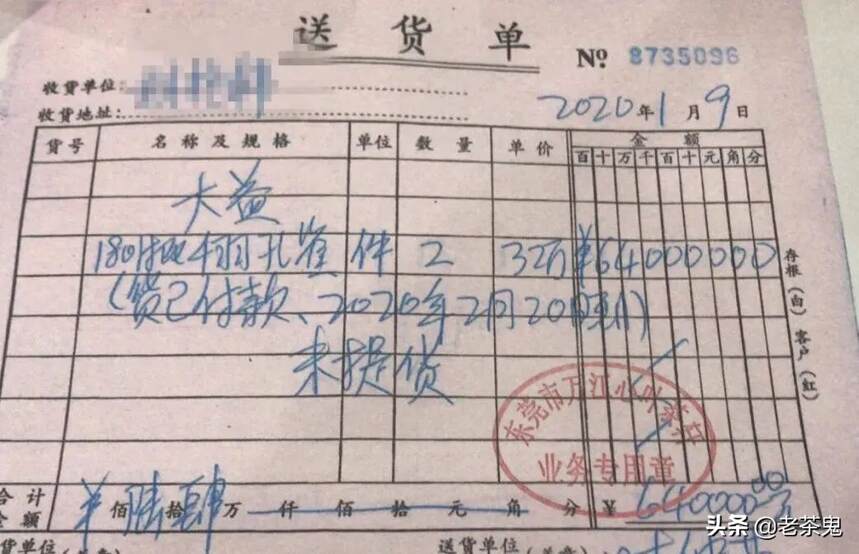 送货单
№ 8735096
收货单位:
收货地址:
2020年1月9日
货号 名称及规格 单位 数量 单价 金额
百十万千百十元角分
大益
1801 孔雀 件 2 32万 ¥64000000
(货已付款、2020年2月20日
未提货
存根(白) 客户(红)
东莞市万江心叶茶店
业务专用章
合计金额 ¥ 佰陆拾肆万 仟 佰 拾 元 角 分 ¥ 640000.00
收货单位
送货单位
头条 @老茶鬼